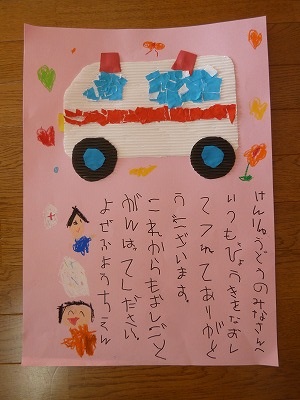 けんしゅうどうのみなさんへ
いつもびょうきをなおし
てくれてありがと
うございます。
これからもおしごと
がんばてください。
よぜふようちえん